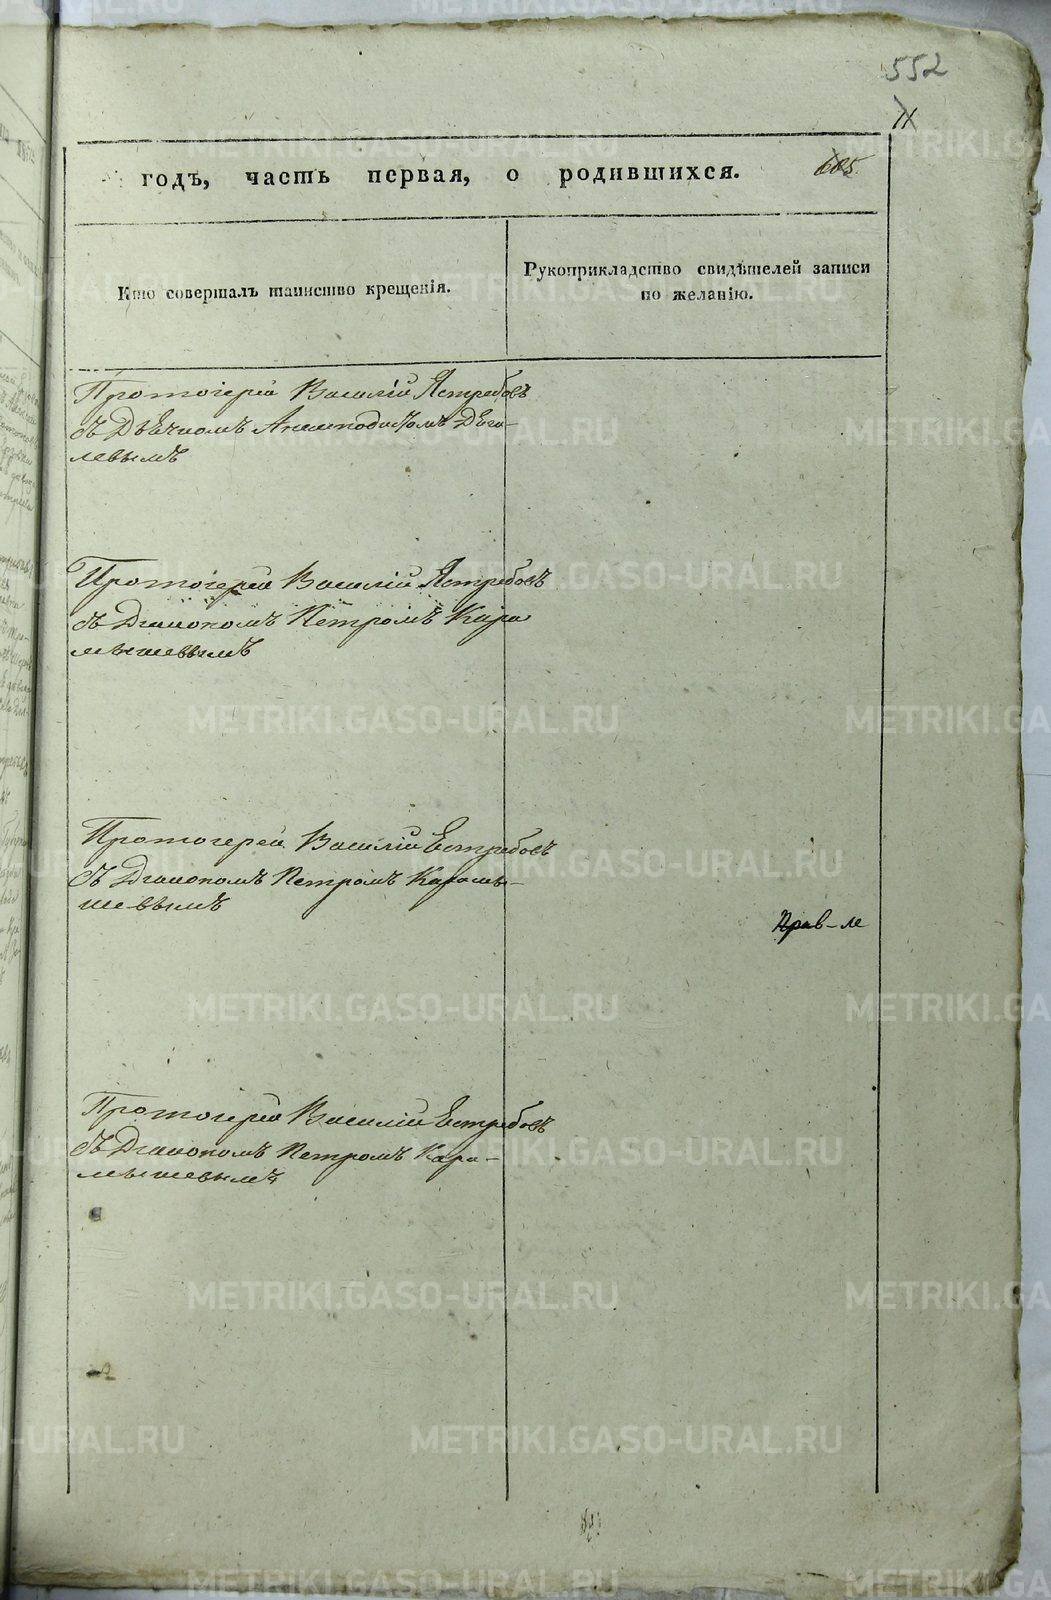 552
11
605.
годъ, часть первая, о родившихся.
Кто совершалъ таинство крещенія.
Рукоприкладство свидѣтелей записи
по желанію.
Протоіерей Василій Ястребовъ
съ Дьячкомъ Анемподистомъ Дега-
левымъ
Протоіерей Василій Ястребовъ
съ Діакономъ Петромъ Кара
мышевымъ
Протоіерей Василій Естребовъ
съ Діакономъ Петромъ Карамы-
шевымъ
Прав-ле
Протоіерей Василій Естребовъ
съ Діакономъ Петромъ Кара-
мышевымъ
METRIKI.GASO-URAL.RU